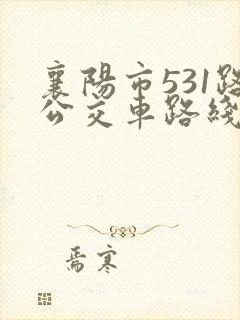 襄陽市531路
公交車路綫
焉寒